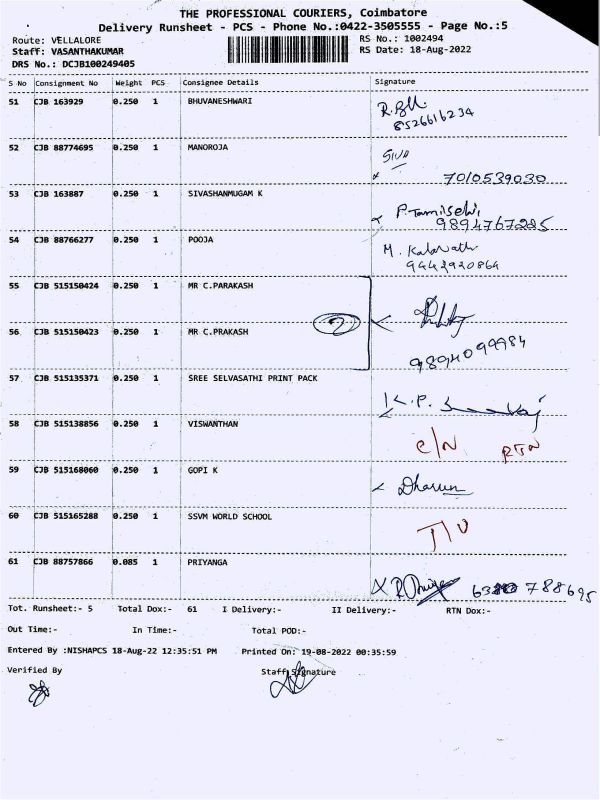 THE PROFESSIONAL COURIERS, Coimbatore
Delivery Runsheet - PCS - Phone No.:0422-3505555 - Page No.:5
Route: VELLALORE
RS No.: 1002494
Staff: VASANTHAKUMAR
RS Date: 18-Aug-2022
DRS No.: DCJB100249405
S No Consignment No Weight PCS Consignee Details Signature
51 CJB 163929 0.250 1 BHUVANESHWARI
8526616234
52 CJB 88774695 0.250 1 MANOROJA Siva
7010539030
53 CJB 163887 0.250 1 SIVASHANMUGAM K P.Tamilselvi
9894767285
54 CJB 88766277 0.250 1 POOJA M. Kalavathi
9442920864
55 CJB 515150424 0.250 1 MR C.PARAKASH
56 CJB 515150423 0.250 1 MR C.PRAKASH 2
9894099984
57 CJB 515135371 0.250 1 SREE SELVASATHI PRINT PACK
K.P.
58 CJB 515138856 0.250 1 VISWANTHAN
C/N RTN
59 CJB 515168060 0.250 1 GOPI K Dharun
60 CJB 515165288 0.250 1 SSVM WORLD SCHOOL
61 CJB 88757866 0.085 1 PRIYANGA
788695
Tot. Runsheet:- 5 Total Dox:- 61 I Delivery:- II Delivery:- RTN Dox:-
Out Time:- In Time:- Total POD:-
Entered By :NISHAPCS 18-Aug-22 12:35:51 PM Printed On: 19-08-2022 00:35:59
Verified By Staff Signature